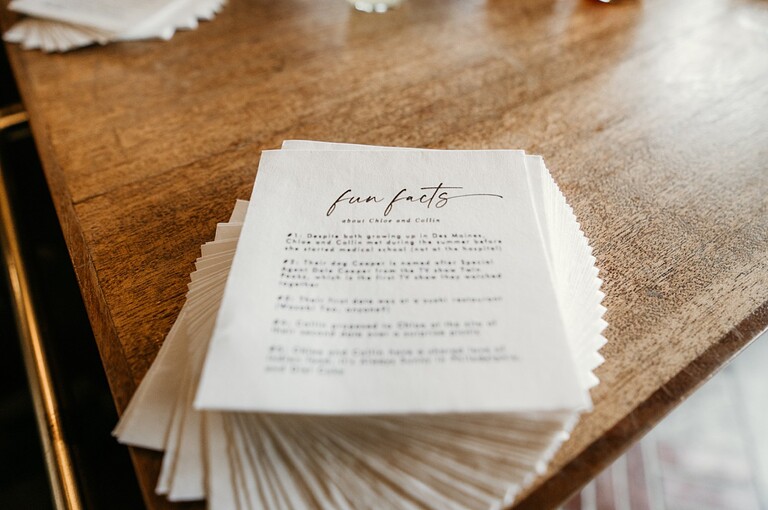 fun facts
about Chloe and Collin
#1: Despite both growing up in Des Moines,
Chloe and Collin met during the summer before
she started medical school (not at the hospital)
#2: Their dog Cooper is named after Special
Agent Dale Cooper from the TV show Twin
Peaks, which is the first TV show they watched
together
#3: Their first date was at a sushi restaurant
(Wasabi Tao, anyone?)
#4: Collin proposed to Chloe at the site of
their second date over a surprise picnic
#5: Chloe and Collin have a shared love of
Indian food, It's Always Sunny in Philadelphia,
and